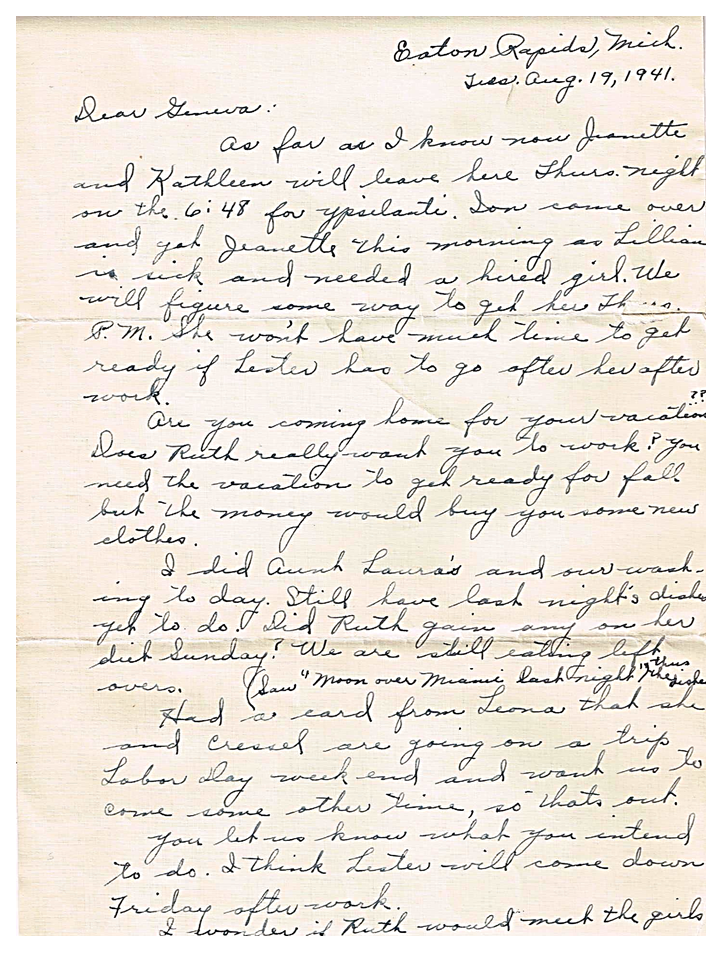 Eaton Rapids, Mich.
Tues. Aug. 19, 1941.
Dear Geneva:
As far as I know now Jeanette
and Kathleen will leave here Thurs. night
on the 6:48 for Ypsilanti. Don came over
and get Jeanette this morning as Lillian
is sick and needed a hired girl. We
will figure some way to get her Thurs.
P.M. She won't have much time to get
ready if Lester has to go after her after
work.
Are you coming home for your vacation??
Does Ruth really want you to work? You
need the vacation to get ready for fall
but the money would buy you some new
clothes.
I did Aunt Laura's and our wash-
ing to day. Still have last night's dishes
yet to do. Did Ruth gain any on her
diet Sunday? We are still eating left
overs. (Saw "Moon over Miami last night" thus the dishes
Had a card from Leona that she
and Cressel are going on a trip
Labor Day week end and want us to
come some other time, so thats out.
You let us know what you intend
to do. I think Lester will come down
Friday after work.
I wonder if Ruth would meet the girls